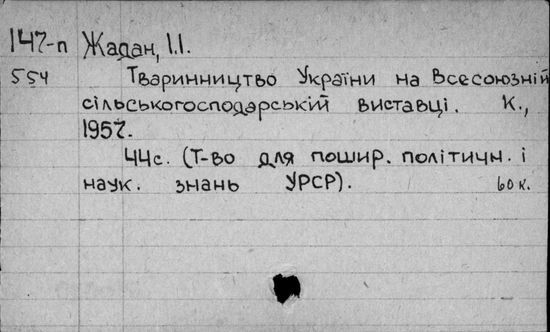 147-п Жадан, І.І.
554 Тваринництво України на Всесоюзній
сільськогосподарській виставці. К.,
1957.
44с. (Т-во для пошир. політичн. і
наук. знань УРСР). 60 к.